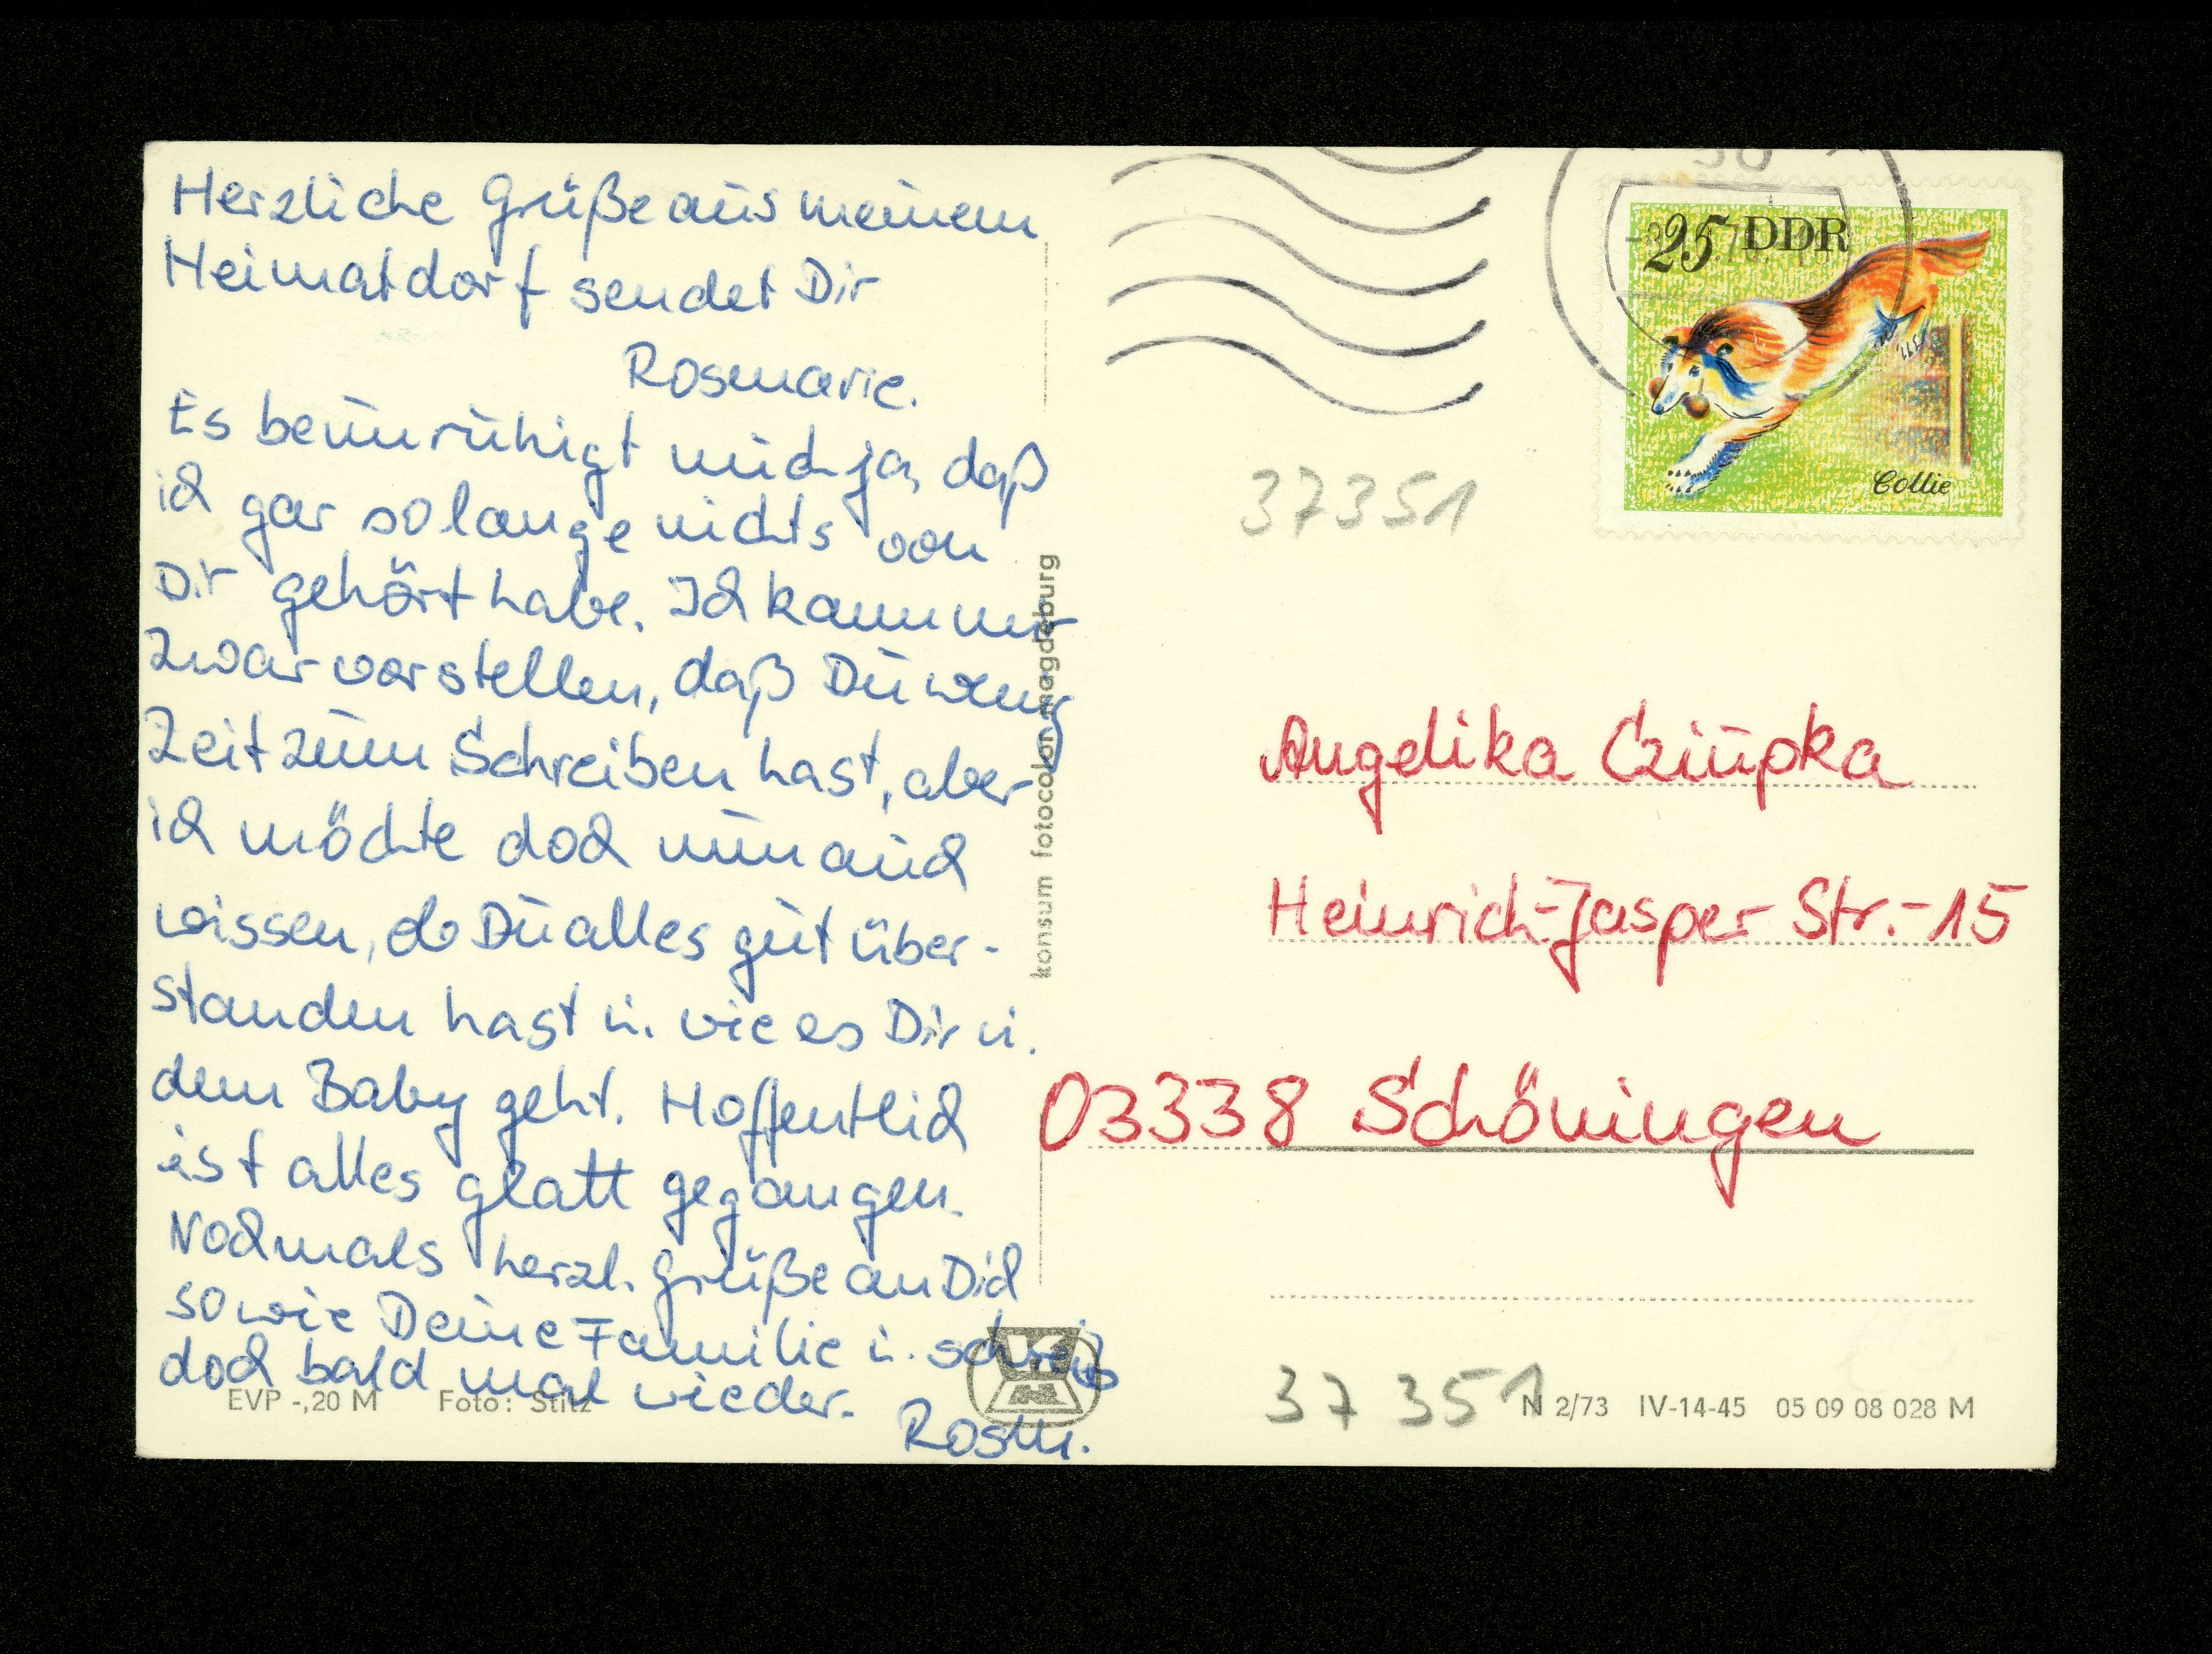 Herzliche Grüße aus meinem
Heimatdorf sendet Dir
Rosmarie.
Es beunruhigt mich ja, daß
ich gar so lange nichts von
Dir gehört habe. Ich kann mir
zwar vorstellen, daß Du wenig
Zeit zum Schreiben hast, aber
ich möchte doch nun auch
wissen, ob Du alles gut über-
standen hast u. wie es Dir u.
dem Baby geht. Hoffentlich
ist alles glatt gegangen.
Nochmals herzl. Grüße an Dich
sowie Deine Familie u. schreib
doch bald mal wieder.
Rosm.
EVP -,20 M Foto: Stitz
konsum fotocolor magdeburg
25 DDR
Collie
37351
Angelika Cziupka
Heinrich-Jasper-Str.-15
03338 Schöningen
37 351
N 2/73 IV-14-45 05 09 08 028 M